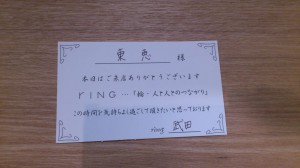 東恵 様
本日はご来店ありがとうございます
RING…「輪・人と人とのつながり」
この時間が気持ちよく過ごして頂きたいで思っております
ring 武田